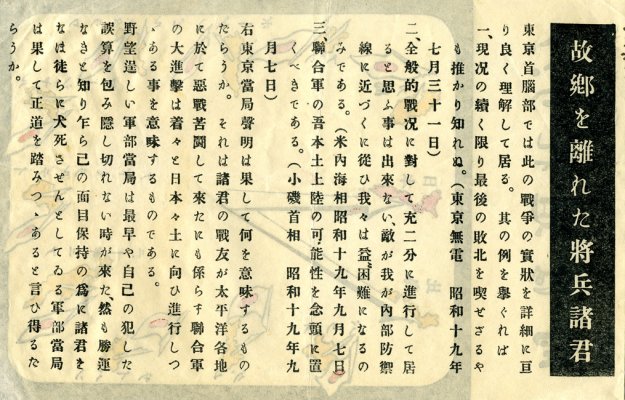 故鄉を離れた將兵諸君
東京首腦部では此の戰爭の實狀を詳細に亘
り良く理解して居る。其の例を擧ぐれば
一、現況の續く限り最後の敗北を喫せざるや
も推かり知れぬ。(東京無電 昭和十九年
七月三十一日)
二、全般的戰況に對して充二分に進行して居
ると思ふ事は出來ない、敵が我が內部防禦
線に近づくに從ひ我々は益々困難になるの
みである。(米內海相昭和十九年九月七日)
三、聯合軍の吾本土上陸の可能性を念頭に置
くべきである。(小磯首相 昭和十九年九
月七日)
右東京當局聲明は果して何を意味するもの
たらうか。それは諸君の戰友が太平洋各地
に於て惡戰苦鬪して來たにも係らず聯合軍
の大進擊は着々と日本々土に向ひ進行しつ
ゝある事を意味するものである。
野望逞しい軍部當局は最早や自己の犯した
誤算を包み隱し切れない時が來た、然も勝運
なきと知り乍ら己の面目保持の爲に諸君を
なほ徒らに犬死させんとしてゐる軍部當局
は果して正道を踏みつゝあると言ひ得るた
らうか。